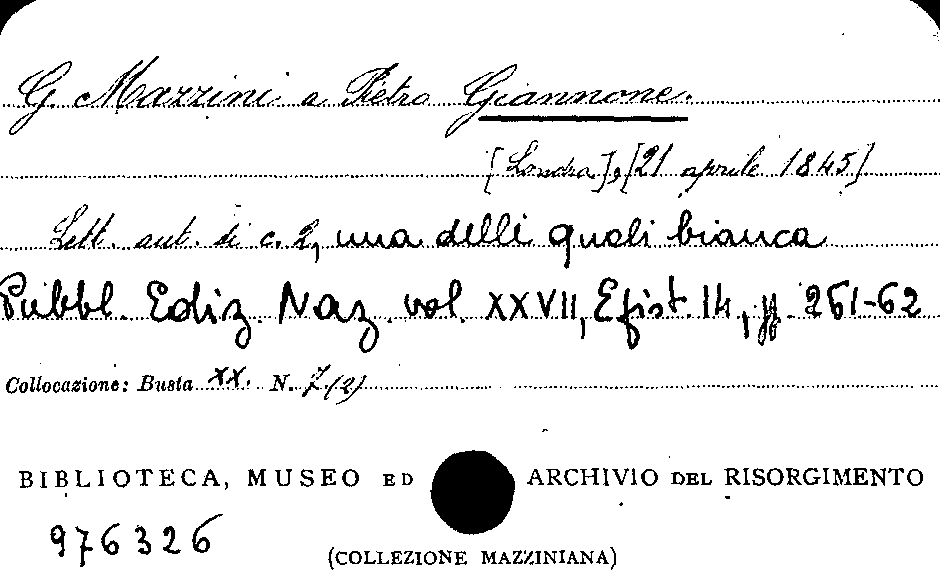 G. Mazzini a Pietro Giannone.
[Londra], [21 aprile 1845]
Lett. aut. di c. 2, una delli quali bianca
Pubbl. Ediz. Naz. vol. XXVII, Epist. 14, pp. 261-62
Collocazione: Busta XX. N. 7.(2)
BIBLIOTECA, MUSEO ED ARCHIVIO DEL RISORGIMENTO
976326
(COLLEZIONE MAZZINIANA)